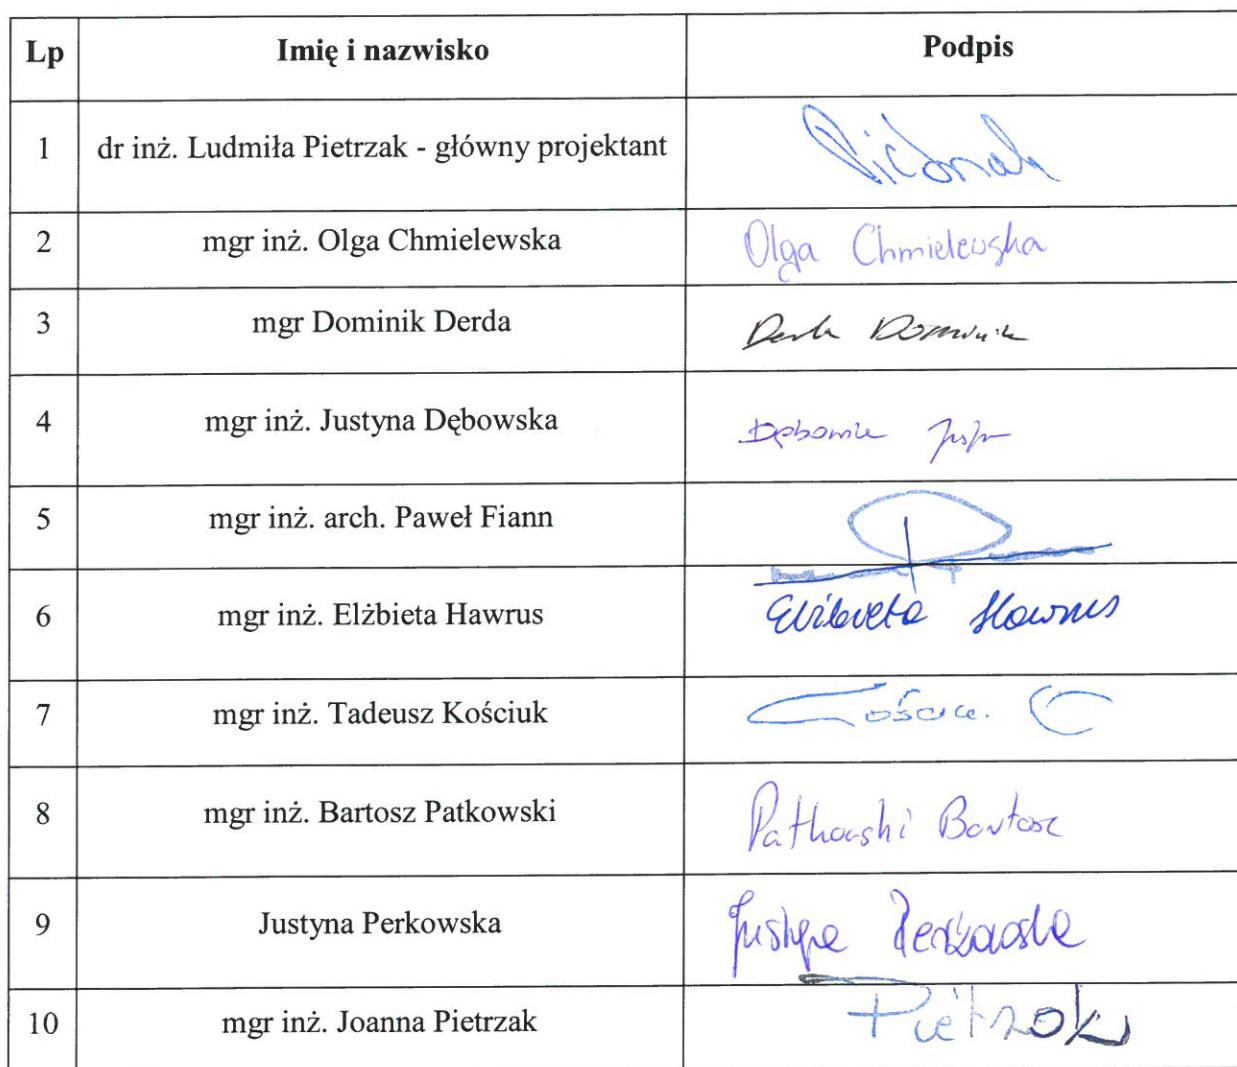 Lp Imię i nazwisko Podpis
1 dr inż. Ludmiła Pietrzak - główny projektant
2 mgr inż. Olga Chmielewska Olga Chmielewska
3 mgr Dominik Derda Derda Dominik
4 mgr inż. Justyna Dębowska
5 mgr inż. arch. Paweł Fiann
6 mgr inż. Elżbieta Hawrus Elżbieta Hawrus
7 mgr inż. Tadeusz Kościuk
8 mgr inż. Bartosz Patkowski Patkowski Bartosz
9 Justyna Perkowska Justyna Perkowska
10 mgr inż. Joanna Pietrzak Pietrzak